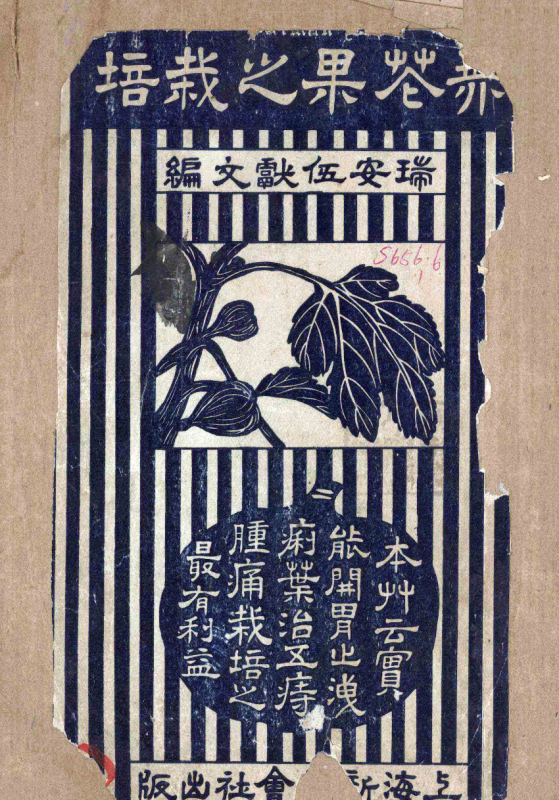 無花果之栽培
瑞安伍獻文編
本艸云實
能開胃止洩
痢葉治五痔
腫痛栽培之
最有利益
上海新會社出版